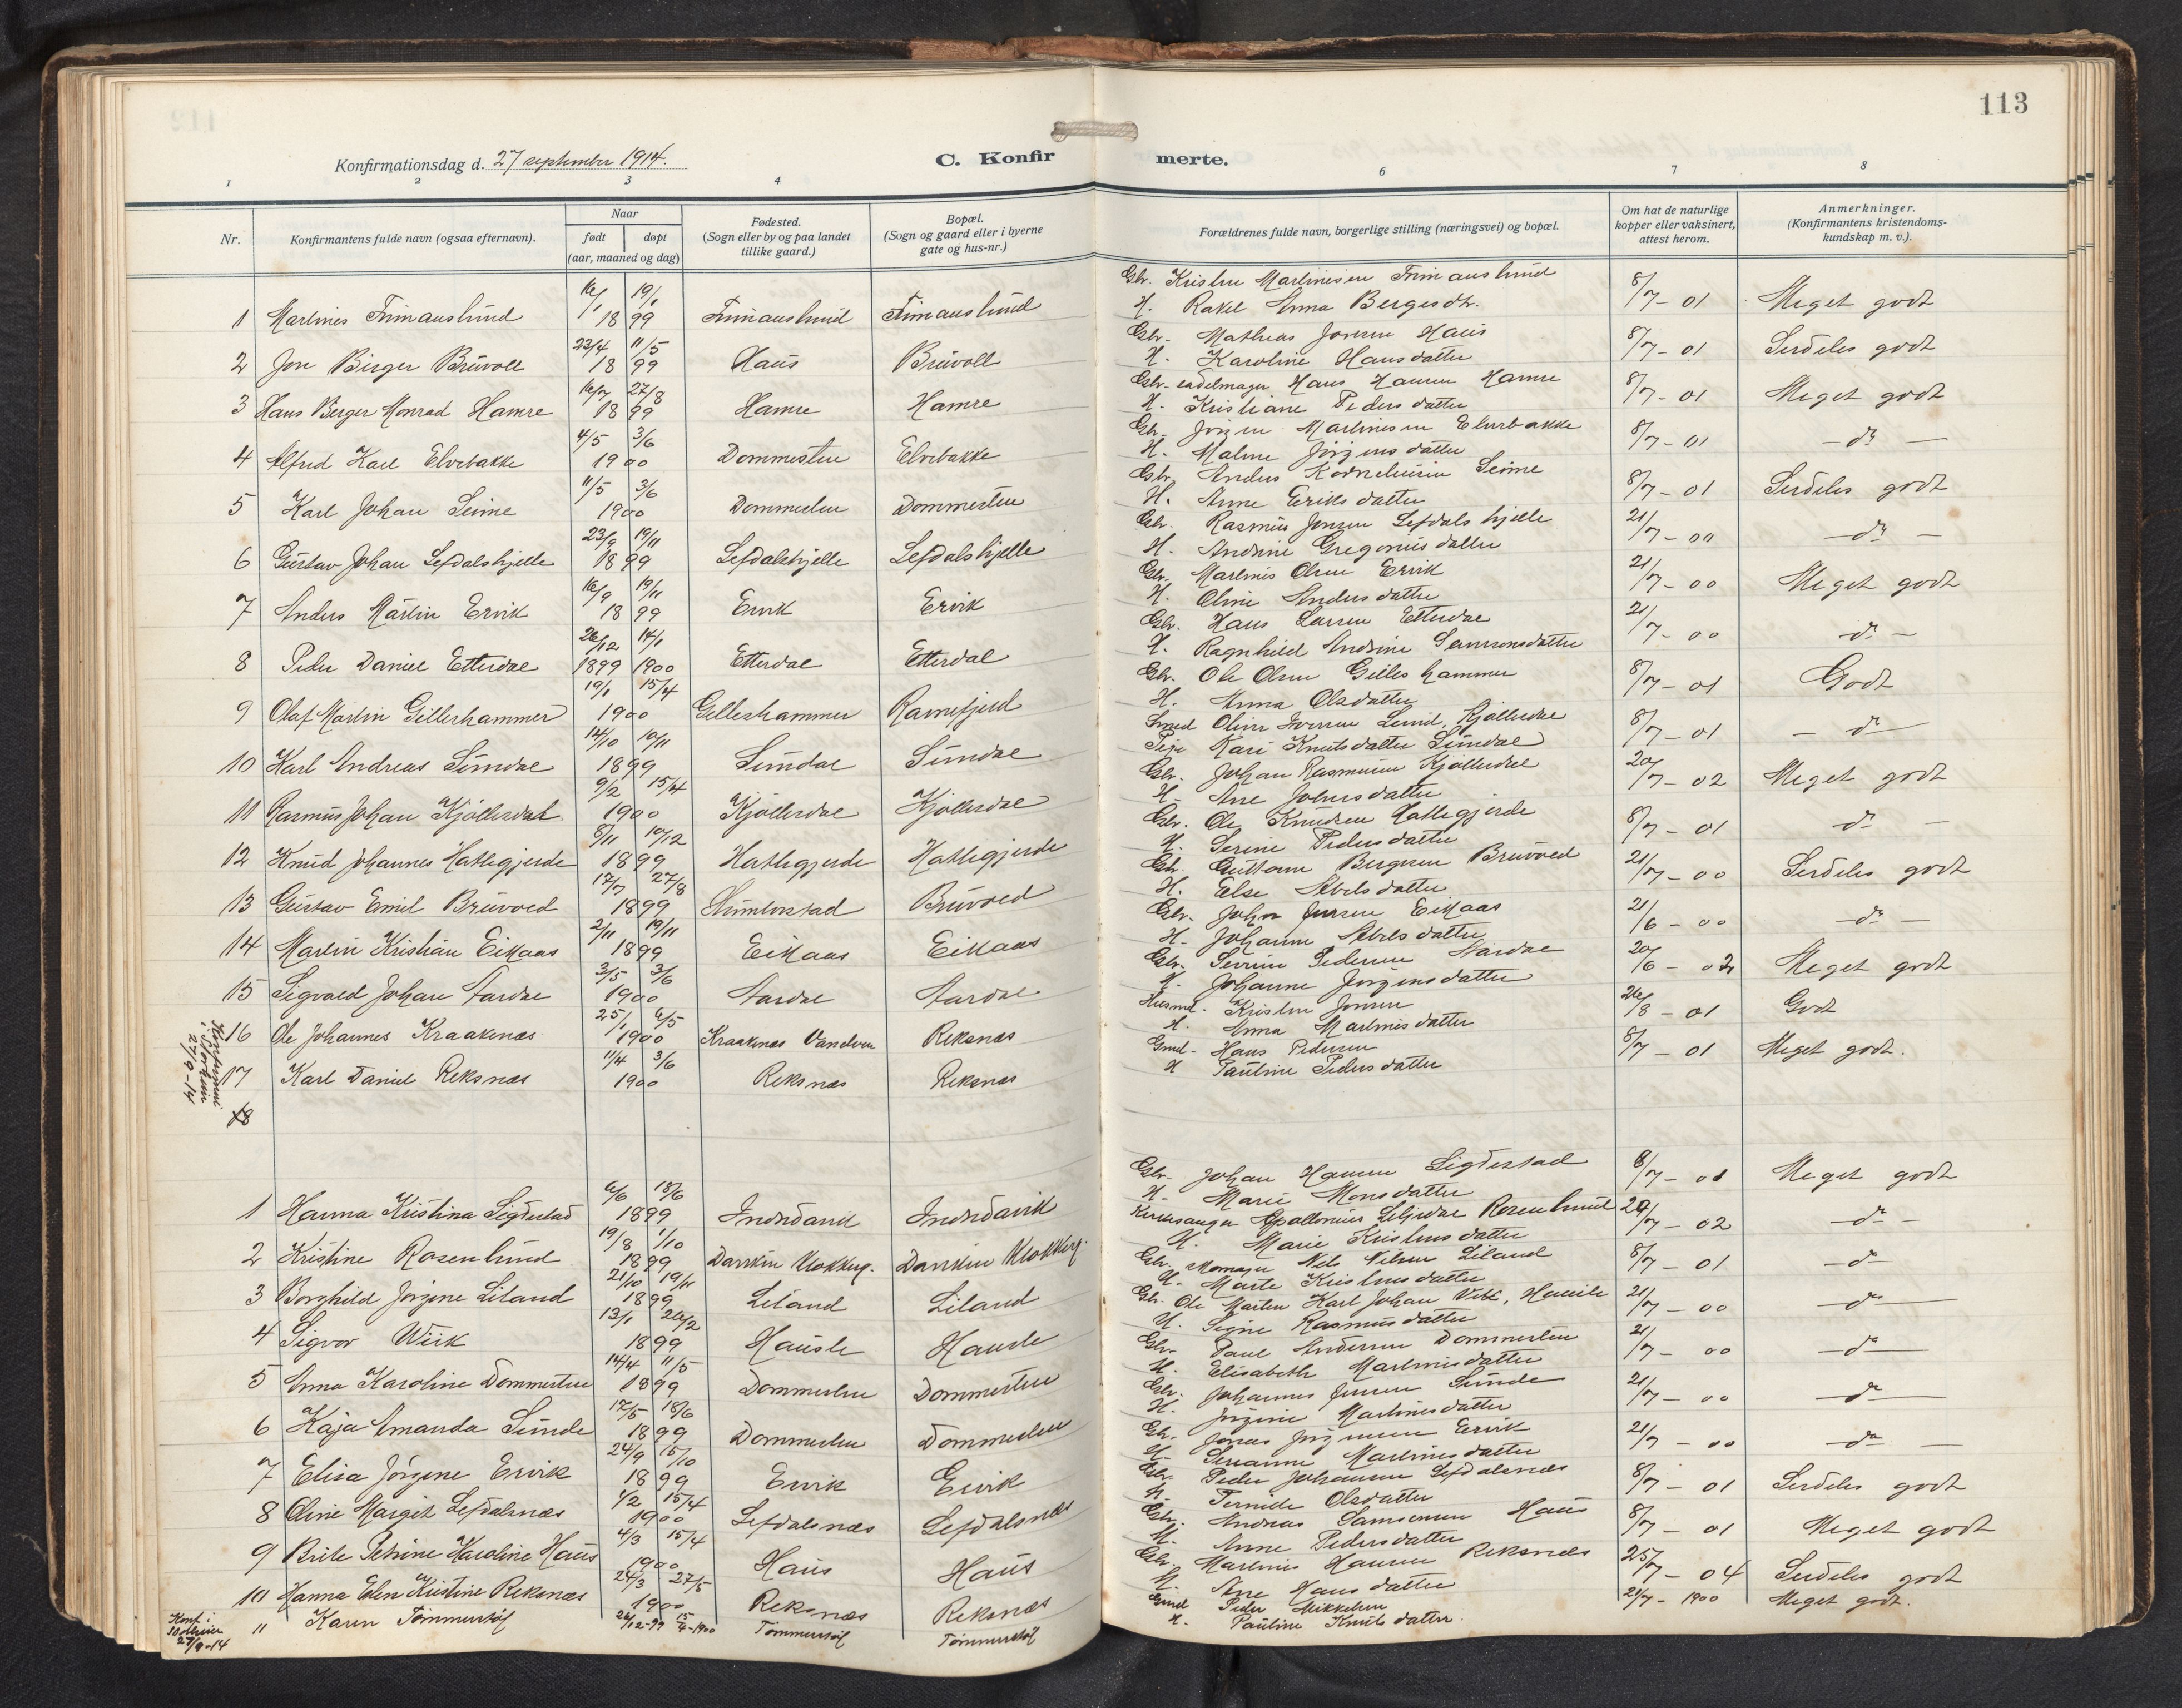 113
Konfirmationsdag d. 27 september 1914.
C. Konfir merte.
1 2 3 4 6 7 8
Nr.
Konfirmantens fulde navn (ogsaa efternavn).
Naar
født døpt
(aar, maaned og dag)
Fødested.
(Sogn eller by og paa landet
tillike gaard.)
Bopæl.
(Sogn og gaard eller i byerne
gate og hus-nr.)
Forældrenes fulde navn, borgerlige stilling (næringsvei) og bopæl.
Om hat de naturlige
kopper eller vaksinert,
attest herom.
Anmerkninger.
(Konfirmantens kristendoms-
kundskap m. v.).
Gbr. Kristen Martinesen
1 Martines 16/1 19/1 1899 8/7-01 Meget godt
H. Rakel Anna Bergesdtr.
Gbr. Mathias Jonsen Haus
2 Jon Birger Bruvoll 23/4 11/5 1899 Haus Bruvoll 8/7-01 Serdeles godt
H. Karoline Hansdatter
Gbr. sadelmager Hans Hansen Hamre
3 Hans Birger Monrad Hamre 16/7 27/8 1899 Hamre Hamre 8/7-01 Meget godt
H. Kristiane Pedersdatter
Gbr. Jørgen Martinesen Elvebakke
4 Alfred Karl Elvebakke 4/5 3/6 1900 Dommesten Elvebakke 8/7-01 - do -
H. Malene Jørgensdatter
Gbr. Anders Korneliusen Seime
5 Karl Johan Seime 11/5 3/6 1900 Dommesten Dommesten 8/7-01 Serdeles godt
H. Anne Eriksdatter
Gbr. Rasmus Jonsen Lefdalshjelle
6 Gustav Johan Lefdalshjelle 23/9 19/11 1899 Lefdalshjelle Lefdalshjelle 21/7-00 - do -
H. Andrine Gregoriusdatter
Gbr. Martines Olsen Ervik
7 Anders Martin Ervik 16/9 19/11 1899 Ervik Ervik 21/7-00 Meget godt
H. Oline Andersdatter
Gbr. Hans Larsen Etterdal
8 Peder Daniel Etterdal 26/12 14/1 1899 1900 Etterdal Etterdal 21/7-00 - do -
H. Ragnhild Andrine Samsonsdatter
Gbr. Ole Olsen Gilleshammer
9 Olaf Martin Gilleshammer 19/1 15/4 1900 Gilleshammer 8/7-01 Godt
H. Anna Olsdatter
Smed Oliver Lund, Kjøllesdal
10 Karl Andreas Sundal 14/10 19/11 1899 Sundal Sundal 8/7-01 - do -
Pige Kari Knutsdatter Sundal
Gbr. Johan Rasmusen Kjøllesdal
11 Rasmus Johan Kjøllesdal 9/2 15/4 1900 Kjøllesdal Kjøllesdal 20/7-02 Meget godt
H. Ane Johnsdatter
Gbr. Ole Knudsen Hatlegjerde
12 Knud Johannes Hatlegjerde 8/11 10/12 1899 Hatlegjerde Hatlegjerde 8/7-01 - do -
H. Serine Pedersdatter
Gbr. Guttorm Bergesen Bruvold
13 Gustav Emil Bruvold 17/7 27/8 1899 Bruvold 21/7-00 Serdeles godt
H. Else Abelsdatter
Gbr. John Jensen Eikaas
14 Martin Kristian Eikaas 2/11 19/11 1899 Eikaas Eikaas 21/6-00 - do -
H. Johanne Abelsdatter
Gbr. Severin Pedersen Aardal
15 Sigvald Johan Aardal 3/5 3/6 1900 Aardal Aardal 20/6-02 Meget godt
H. Johanne Jørgensdatter
Husmd. Kristen Jonsen
16 Ole Johannes Kraakenæs 25/1 6/5 1900 Kraakenæs Reksnæs 26/8-01 Godt
H. Anna Martinisdatter
Grmd. Hans Pedersen
17 Karl Daniel Reksnæs 11/4 3/6 1900 Reksnæs Reksnæs 8/7-01 Meget godt.
H Pauline Pedersdatter
27/9-14
18
Gbr. Johan Hansen Sigdestad
1 Hanna Kristina Sigdestad 6/6 18/6 1899 Indredavik Indredavik 8/7-01 Meget godt
H. Marie Monsdatter
Kirkesanger Apollonius Rosenlund
2 Kristine Rosenlund 19/8 1/10 1899 Daviken Klokkerg. Daviken Klokkerg. 24/7-02 - do -
H. Marie Kristensdatter
Gbr. Nils Nilsen Liland
3 Borghild Jørgine Liland 21/10 19/11 1899 Liland Liland 8/7-01 - do -
H. Marte Kristensdatter
Gbr. Ole Martin Karl Johan
4 Sigvor Wiik 13/1 26/2 1899 Hausle Hausle 21/7-00 - do -
H. Signe Rasmusdatter
Gbr. Paul Andersen Dommesten
5 Anna Karoline Dommesten 14/4 11/5 1899 Dommesten Dommesten 21/7-00 - do -
H. Elisabeth Martinisdatter
Gbr. Johannes Jensen Sunde
6 Kaja Amanda Sunde 17/5 18/6 1899 Dommesten Dommesten 21/7-00 - do -
H. Jørgine Martinisdatter
Gbr. Jonas Jørgensen Ervik
7 Elisa Jørgine Ervik 24/9 15/10 1899 Ervik Ervik 21/7-00 - do -
H. Susanne Martinisdatter
Gbr. Peder Johansen Lefdalsnæs
8 Oline Margit Lefdalsnæs 1/2 15/4 1900 Lefdalsnæs Lefdalsnæs 8/7-01 Serdeles godt
H. Olsdatter
Gbr. Andreas Samsonsen Haus
9 Brite Petrine Karoline Haus 4/3 15/4 1900 Haus Haus 8/7-01 Meget godt
H. Anne Pedersdatter
Gbr. Martinis Hansen Reksnæs
10 Hanna Elen Kristine Reksnæs 24/3 27/5 1900 Reksnæs Reksnæs 25/7-04 Serdeles godt
H. Ane Hansdatter
Konf. i
27/9-14
Grmd Peder Mikkelsen
11 Karen 26/12-99 15/4-1900 21/7-1900 Meget godt.
H. Pauline Knutsdatter.